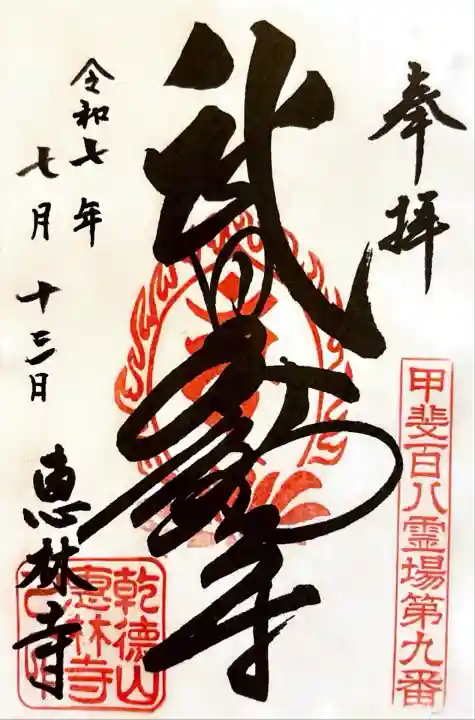 奉拝
甲斐百八霊場第九番
武田不動尊
令和七年
七月十三日
恵林寺
乾德山
惠林寺
之印